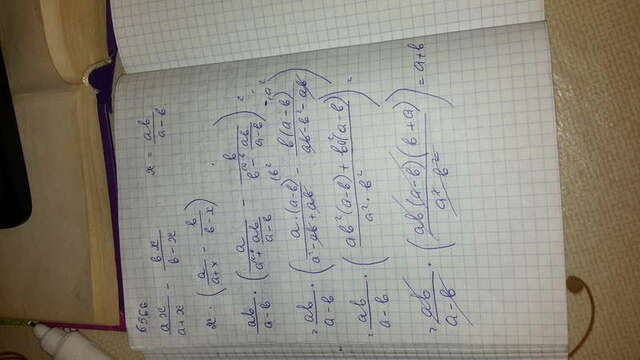 6566
ax/(a+x) - bx/(b-x)   x = ab/(a-b)
x · (a/(a+x) - b/(b-x))
ab/(a-b) · (a/(a + ab/(a-b)) - b/(b - ab/(a-b))) =
= ab/(a-b) · (a·(a-b)/(a²-ab+ab) - b(a-b)/(ab-b²-ab)) =
= ab/(a-b) · (
= ab/(a-b) · (ab(a-b)(b+a)/a²b²) = a+b